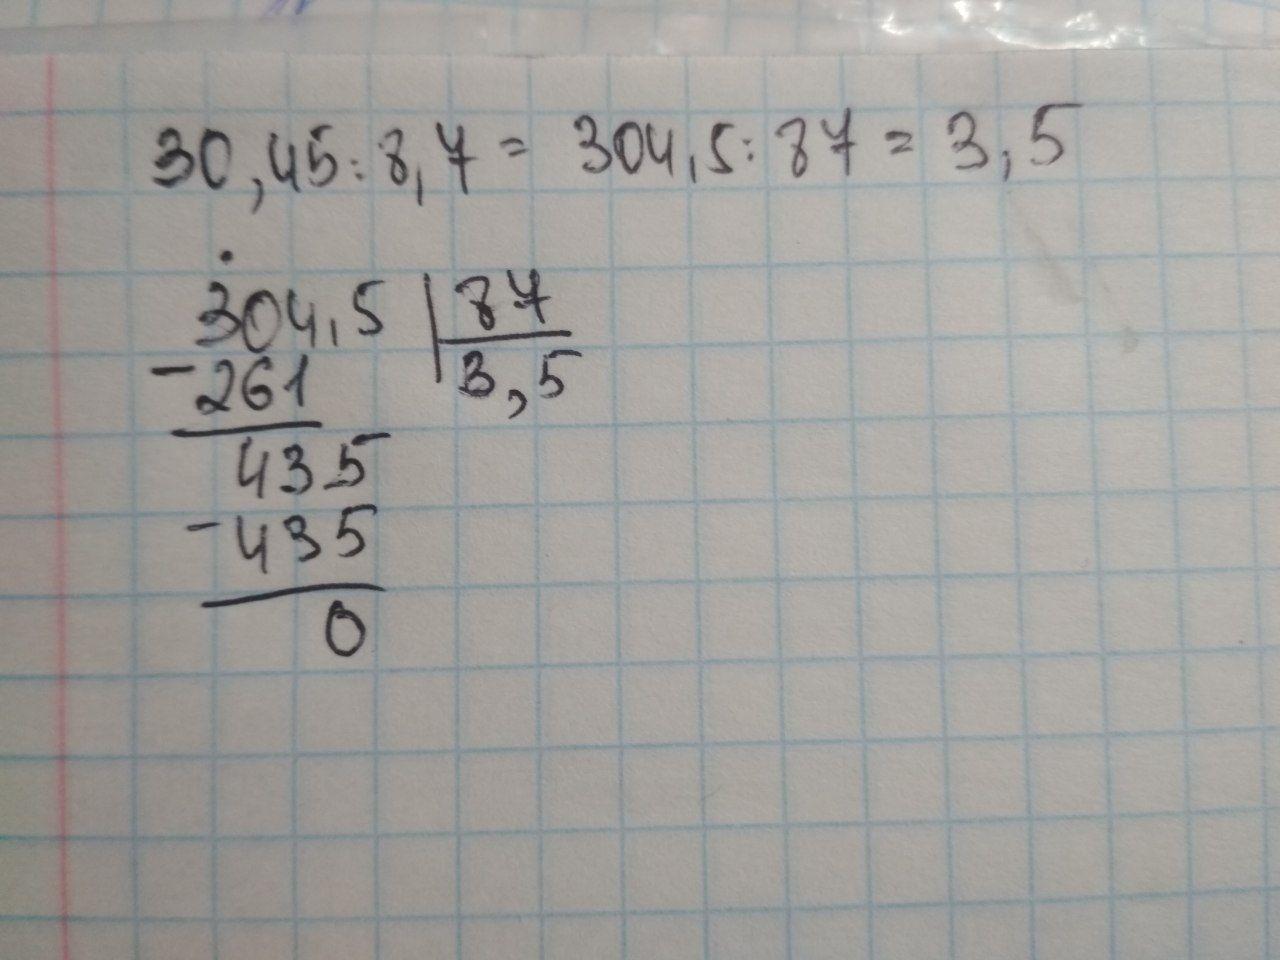 30,45:8,7= 304,5:87=3,5
304,5 87
-261 3,5
435
-435
0